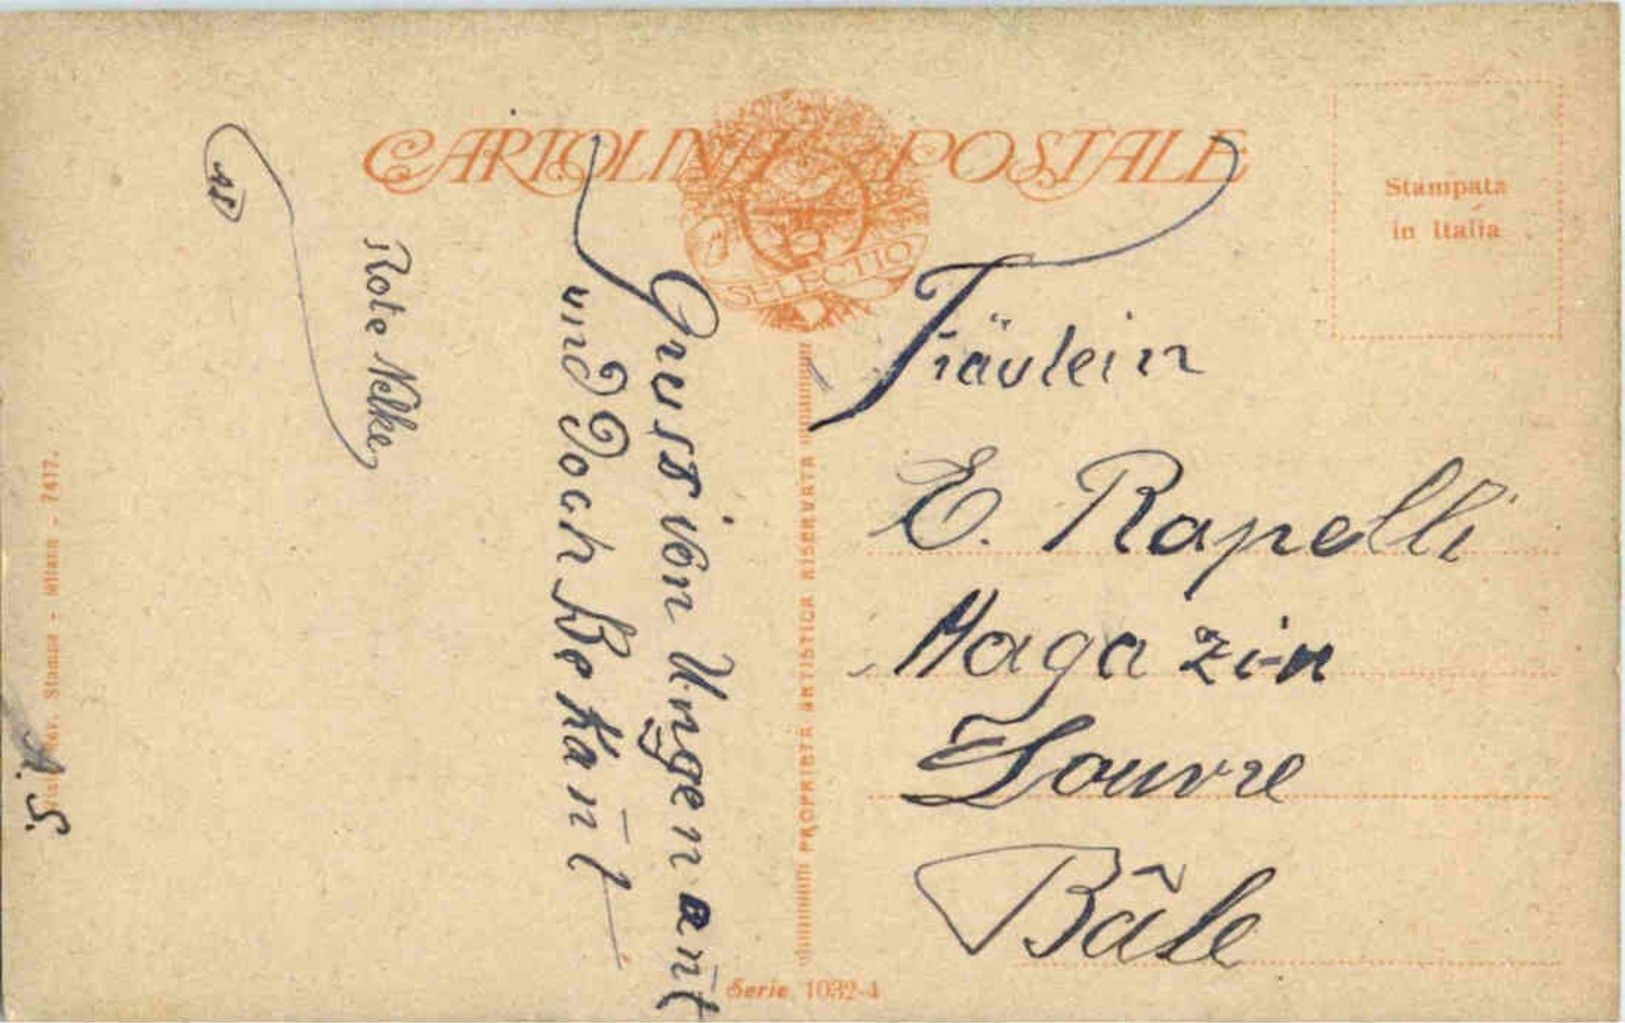 CARTOLINA POSTALE
SELECTIO
Stampata
in Italia
Fräulein
E. Rapelli
Magazin
Louvre
Bâle
Gruss von Ungenan̄t
und Doch Bekan̄t
Rote Nelke
PROPRIETÀ ARTISTICA RISERVATA
Rev. Stampa - Milano - 7417.
Serie 1032-4